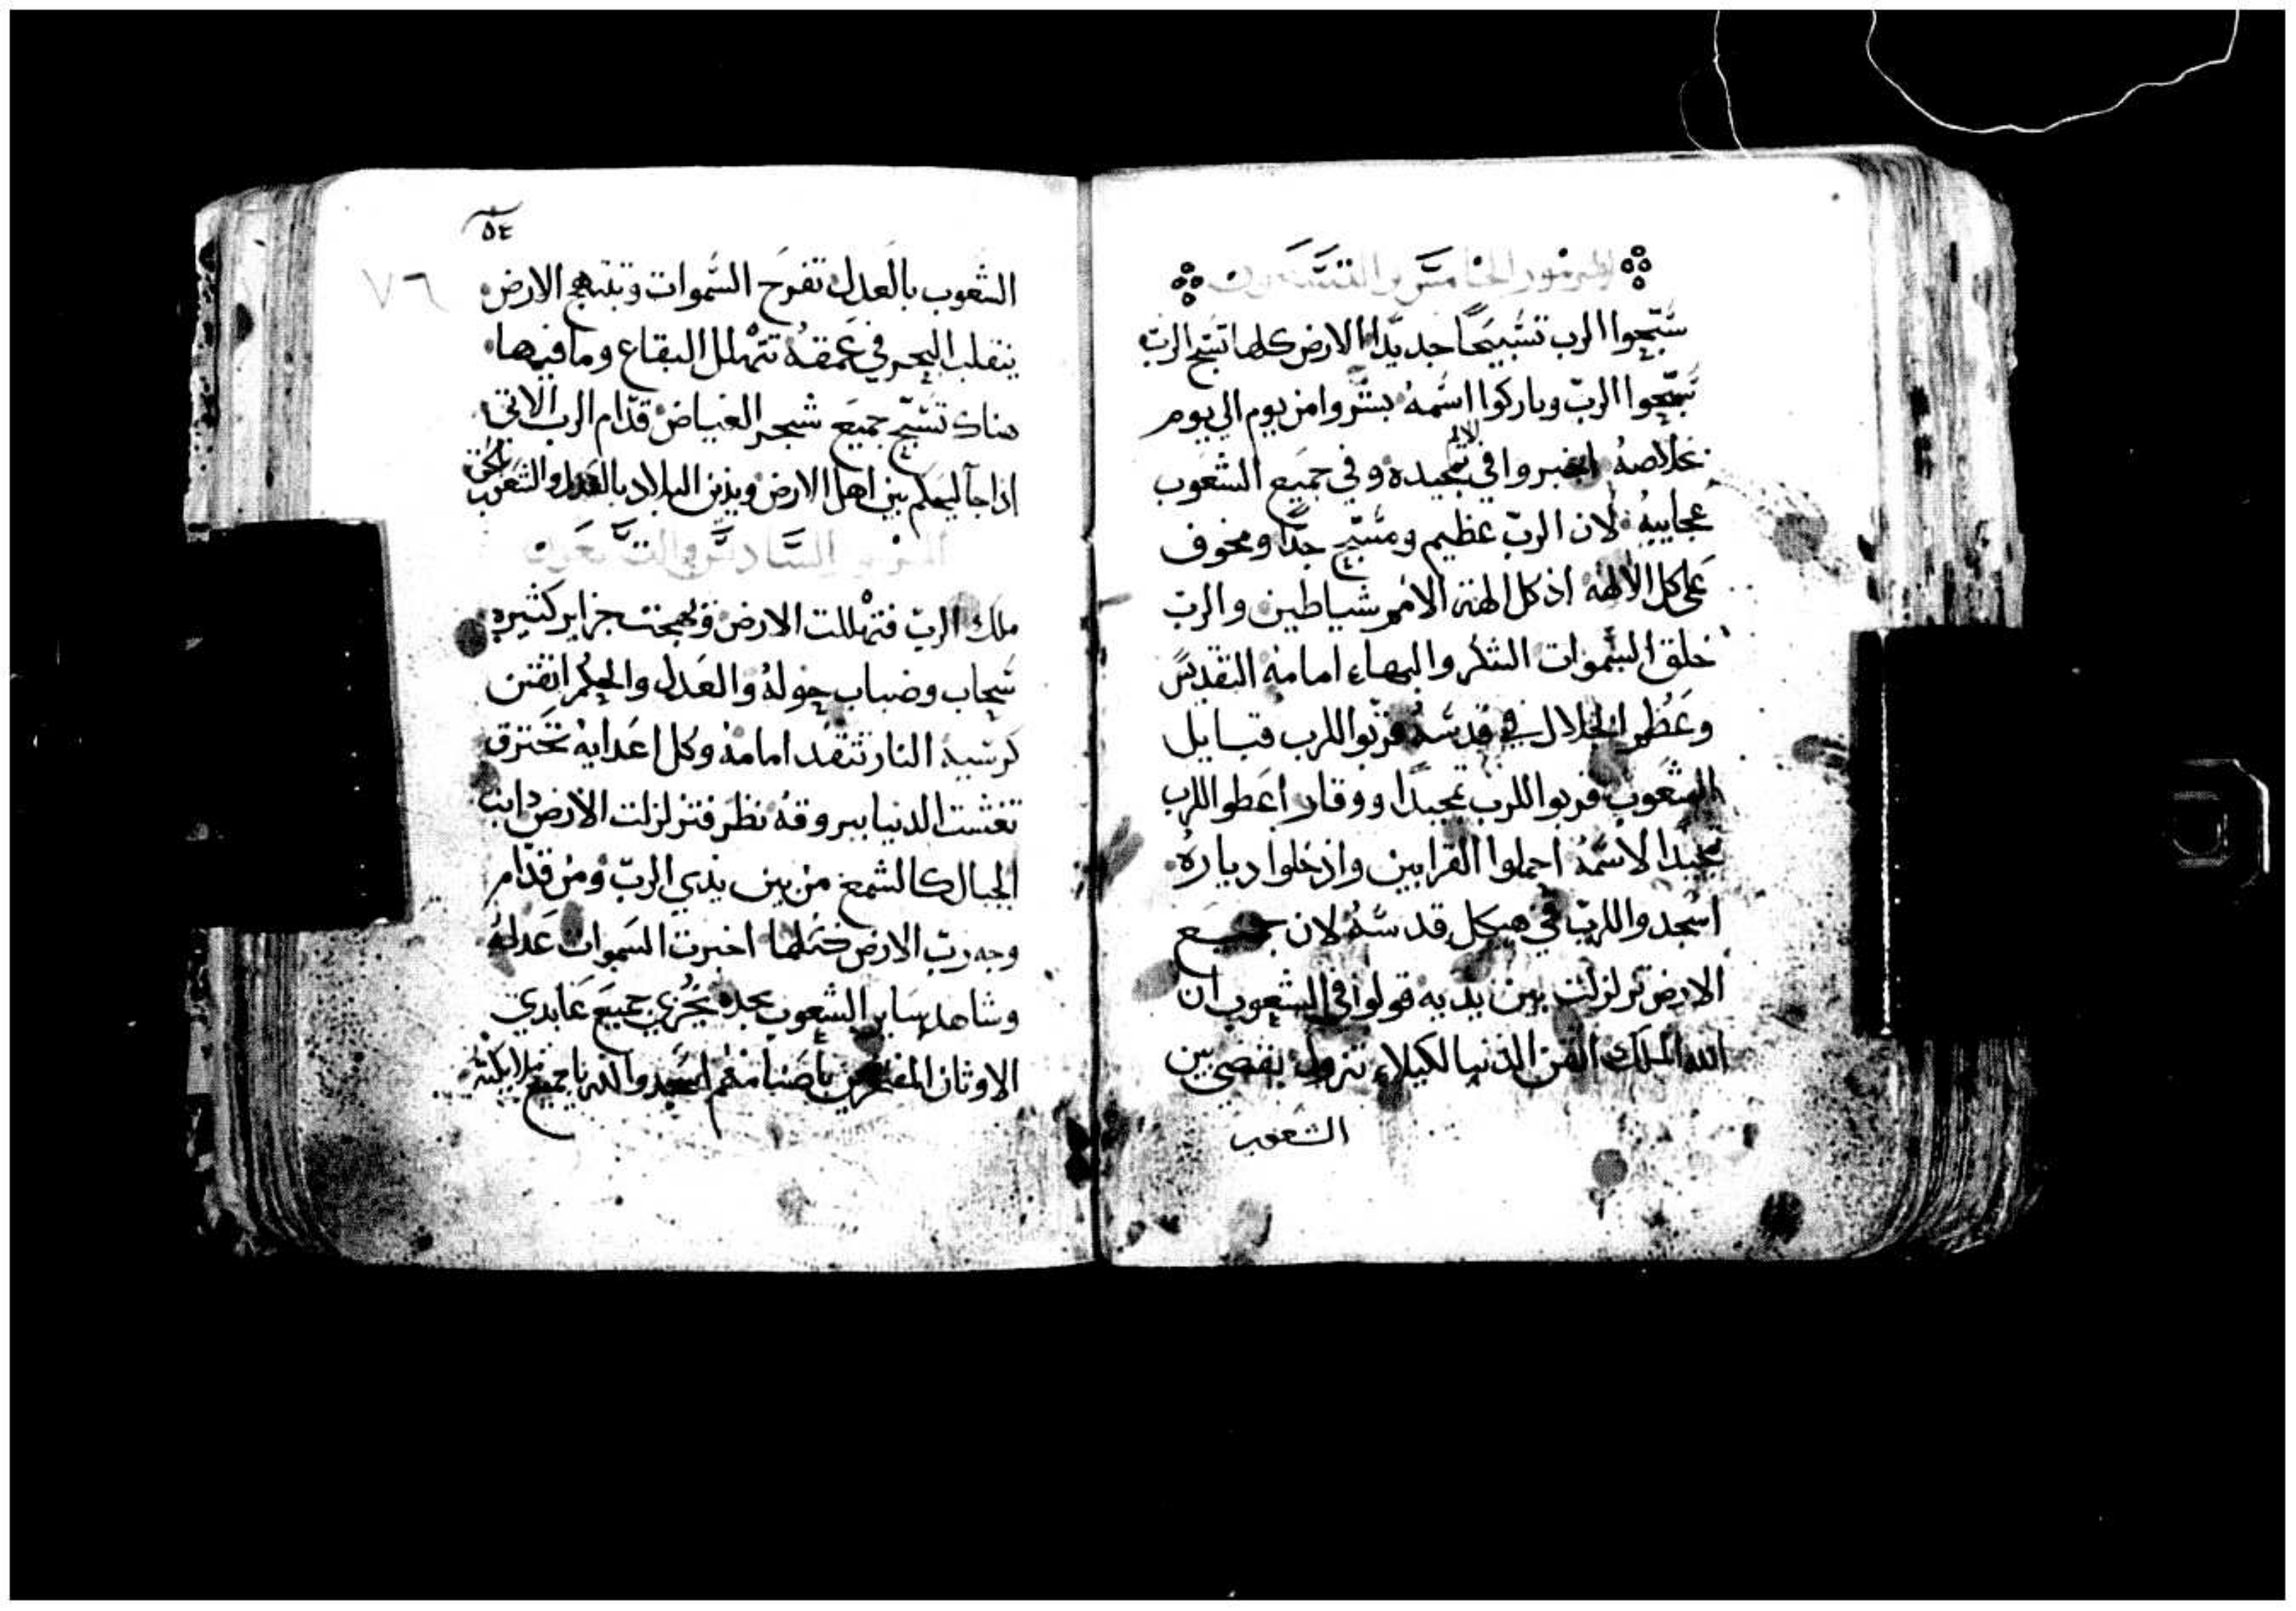 المزمور الخامس والتسعون
سبّحوا الرب تسبيحًا جديدًا الارض كلها تسبح الربّ
سبّحوا الربّ وباركوا اسمه بشروا من يوم الي يوم
خلاصهُ اخبروا في الامم تمجيده وفي جميع الشعوب
عجايبهُ لان الربّ عظيم ومسبّح جدًا ومخوف
على كل الالهة اذ كل الهة الامم شياطين والربّ
خلق السموات الشكر والبهاء امامهُ التقديس
وعظم الجلال في قدسهُ قرّبوا للرب قبايل
الشعوب قربوا للرب تمجيدًا ووقار اعطوا للرب
تمجيدًا لاسمهُ احملوا القرابين وادخلوا ديارهُ
اسجدوا للربّ في هيكل قدسهُ لان جميع
الارض تزلزلت بين يديه قولوا في الشعوب ان
الله الملك اتقن الدنيا لكيلاء تزول يقضي بين
الشعوب
٥٤
٧٦
الشعوب بالعدل تفرح السموات وتبتهج الارض
ينقلب البحر في عمقهُ تتهلل البقاع وما فيها
هناك تسبّح جميع شجر الغياض قدّام الرب الاتي
اذا جآ ليحكم بين اهل الارض ويدين البلاد بالعدل والشعوب بالحق
المزمور السادس والتسعون
ملك الربّ فتهللت الارض وبهجت جزاير كثيره
سحاب وضباب حولهُ والعدل والحكم اتقن
كرسيه النار تتقد امامهُ وكل اعدايهُ تحترق
تغشت الدنيا ببروقهُ نظر فتزلزلت الارض ذابت
الجبال كالشمع من بين يدي الربّ ومن قدّام
وجه ربّ الارض كلها اخبرت السموات عدلهُ
وشاهد ساير الشعوب مجده يخزي جميع عابدي
الاوثان المفتخرين باصنامهم اسجدوا لله يا جميع ملايكته